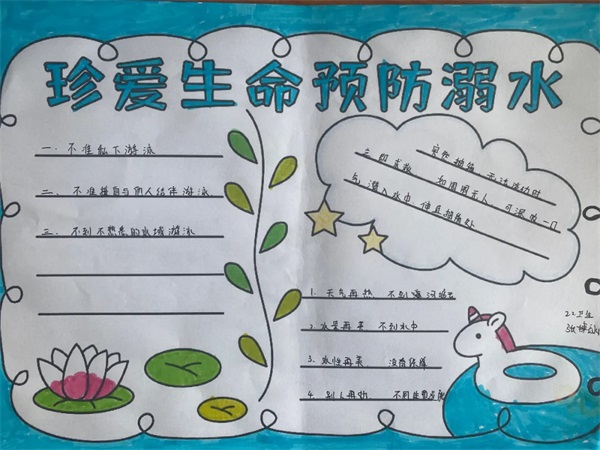 珍爱生命预防溺水
一、不准私下游泳
二、不准擅自与他人结伴游泳
三、不到不熟悉的水域游泳
立即求救
抽筋 无法活动时
如周围无人 可深吸一口
气 潜入水中 伸直抽筋处
1、天气再热 不到
2、水景再美 不到水中
3、水性再
4、别人再劝 不